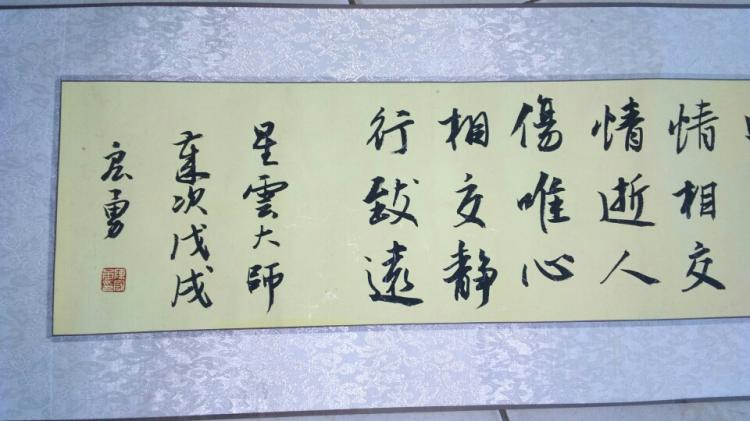 情相交
情逝人
傷唯心
相交静
行致遠
星雲大師
歲次戊戌
宏勇